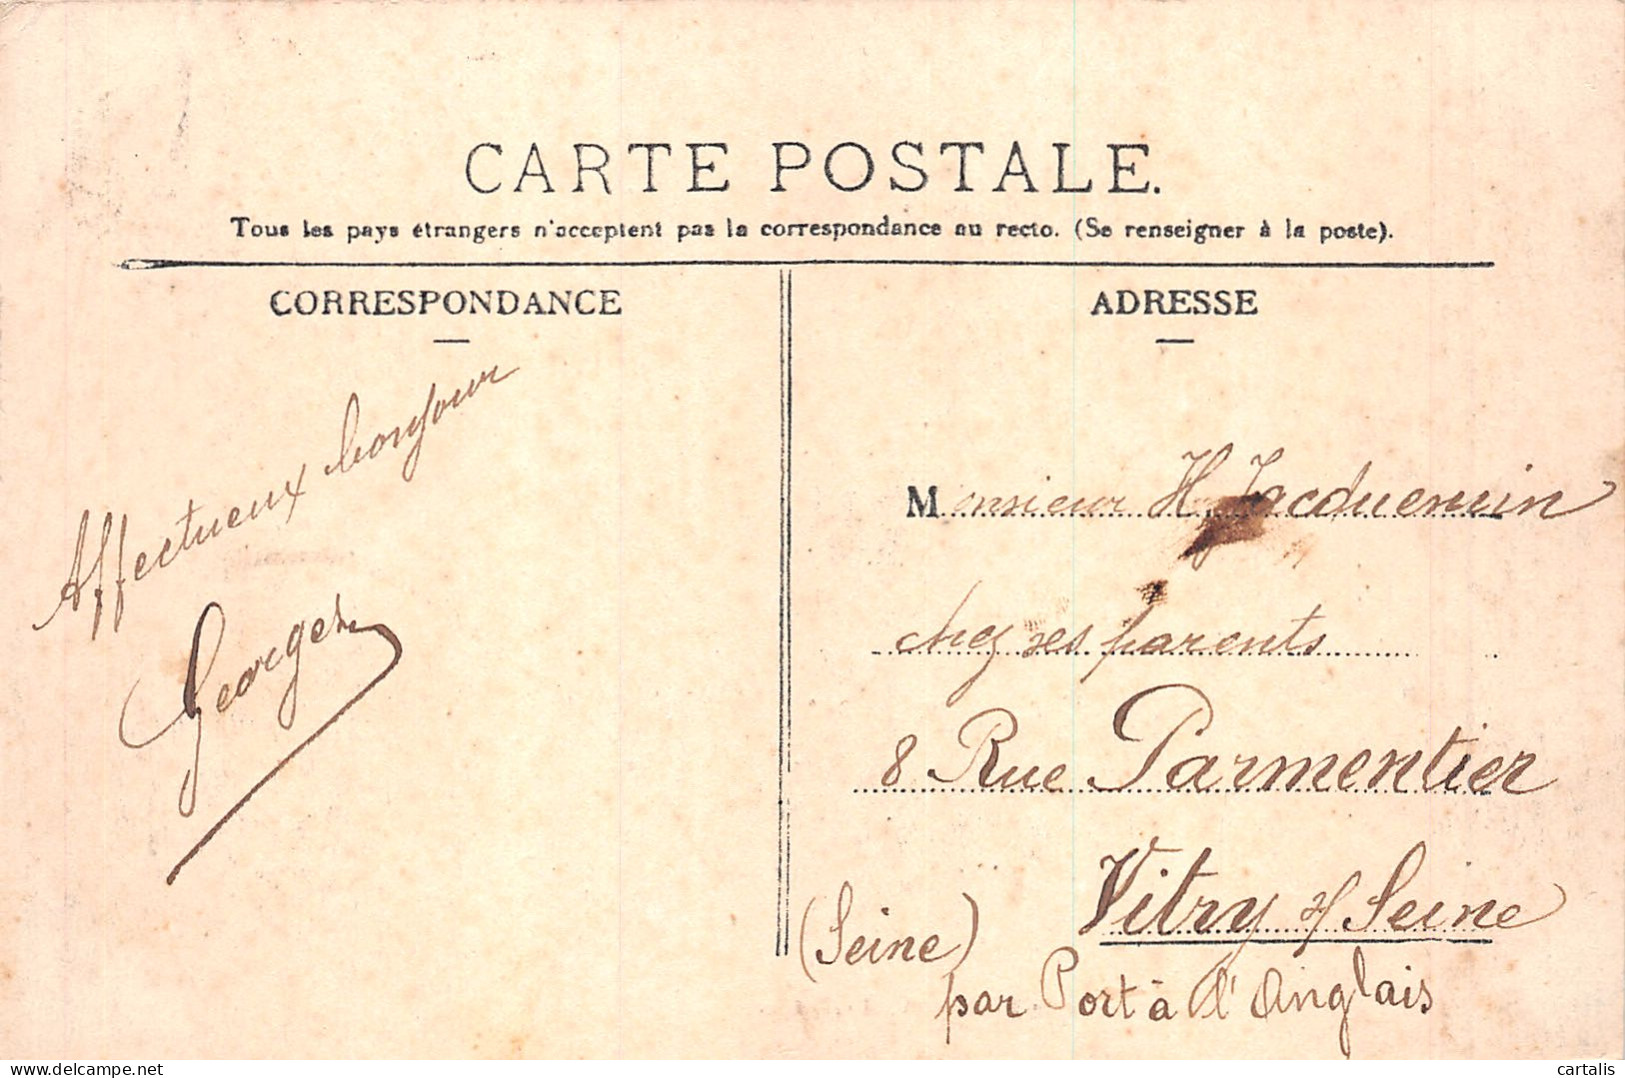 CARTE POSTALE.
Tous les pays étrangers n'acceptent pas la correspondance au recto. (Se renseigner à la poste).
CORRESPONDANCE
Affectueux bonjour
Georges
ADRESSE
Monsieur H. Jacquemin
chez ses parents
8 Rue Parmentier
Vitry s/ Seine
(Seine)
par Port à l'Anglais
www.delcampe.net
cartalis